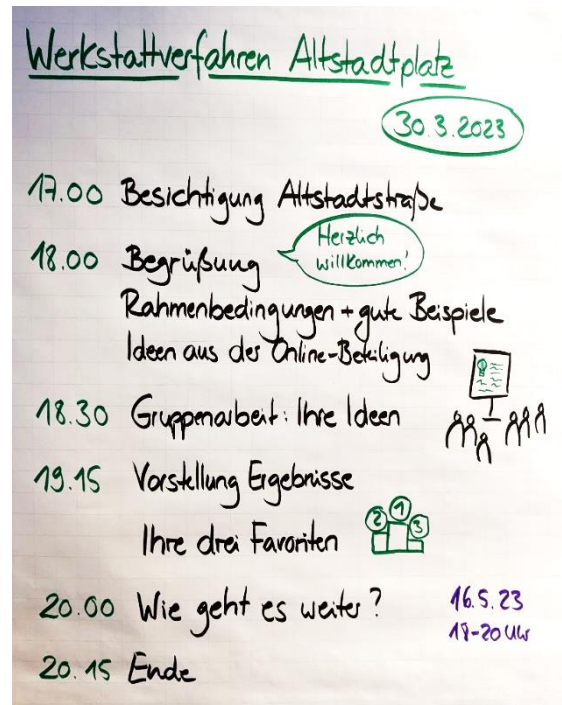 Werkstattverfahren Altstadtplatz
30.3.2023
17.00 Besichtigung Altstadtstraße
18.00 Begrüßung
Herzlich
willkommen!
Rahmenbedingungen + gute Beispiele
Ideen aus der Online-Beteiligung
18.30 Gruppenarbeit: Ihre Ideen
19.15 Vorstellung Ergebnisse
Ihre drei Favoriten
2 1 3
20.00 Wie geht es weiter?
16.5.23
18-20 Uhr
20.15 Ende